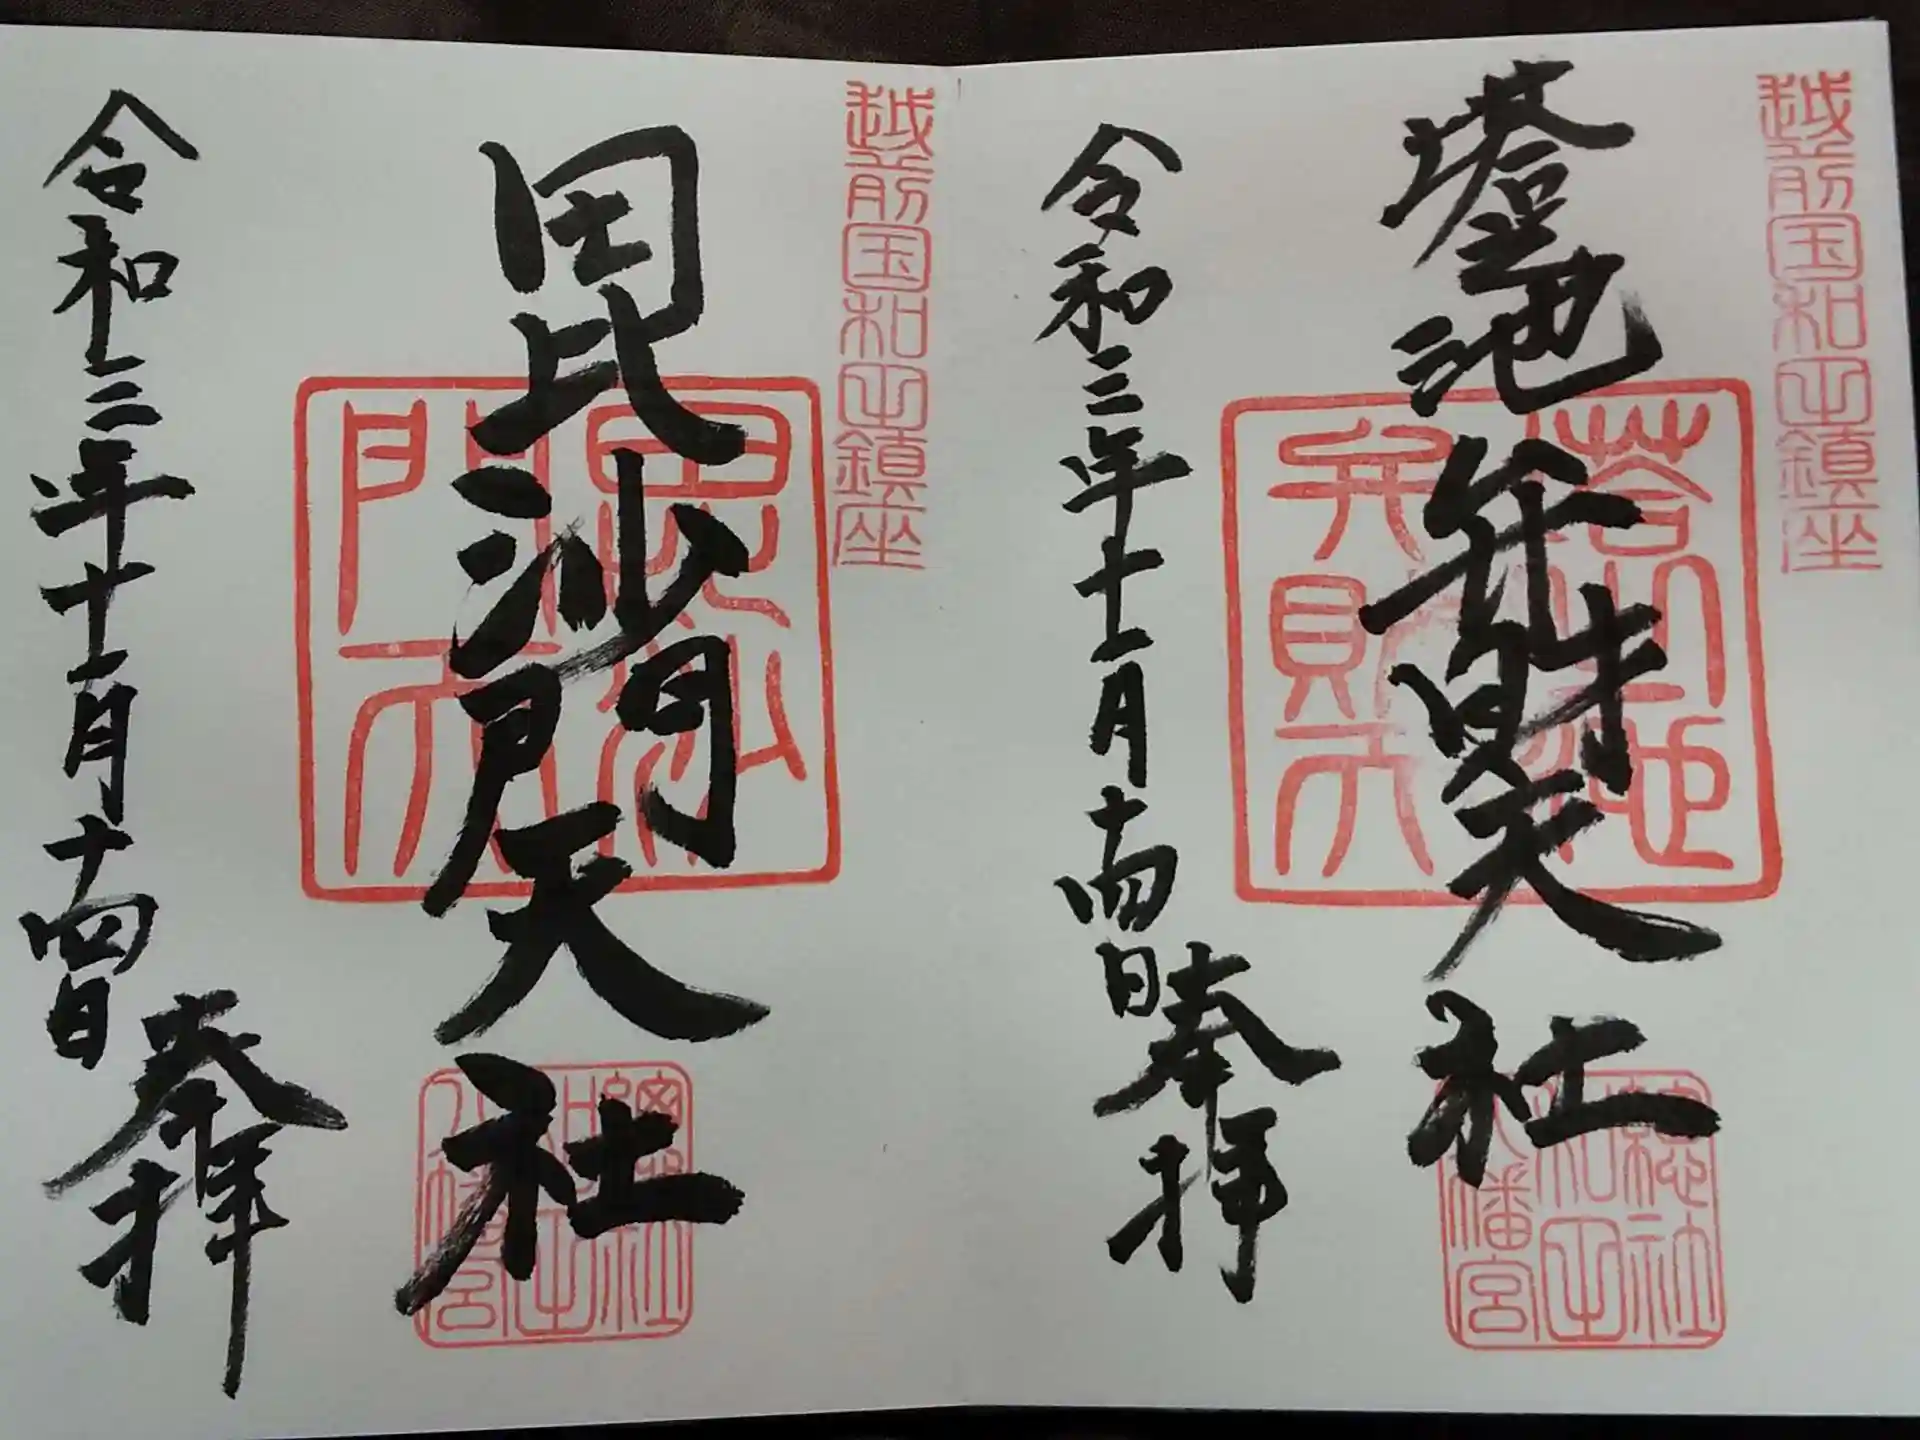 越前国和田鎮座
塔池弁財天社
塔池
弁財天
総社
和田
八幡宮
令和三年十一月十四日
奉拝
越前国和田鎮座
毘沙門天社
毘沙
門天
總社
和田
八幡宮
令和三年十一月十四日
奉拝